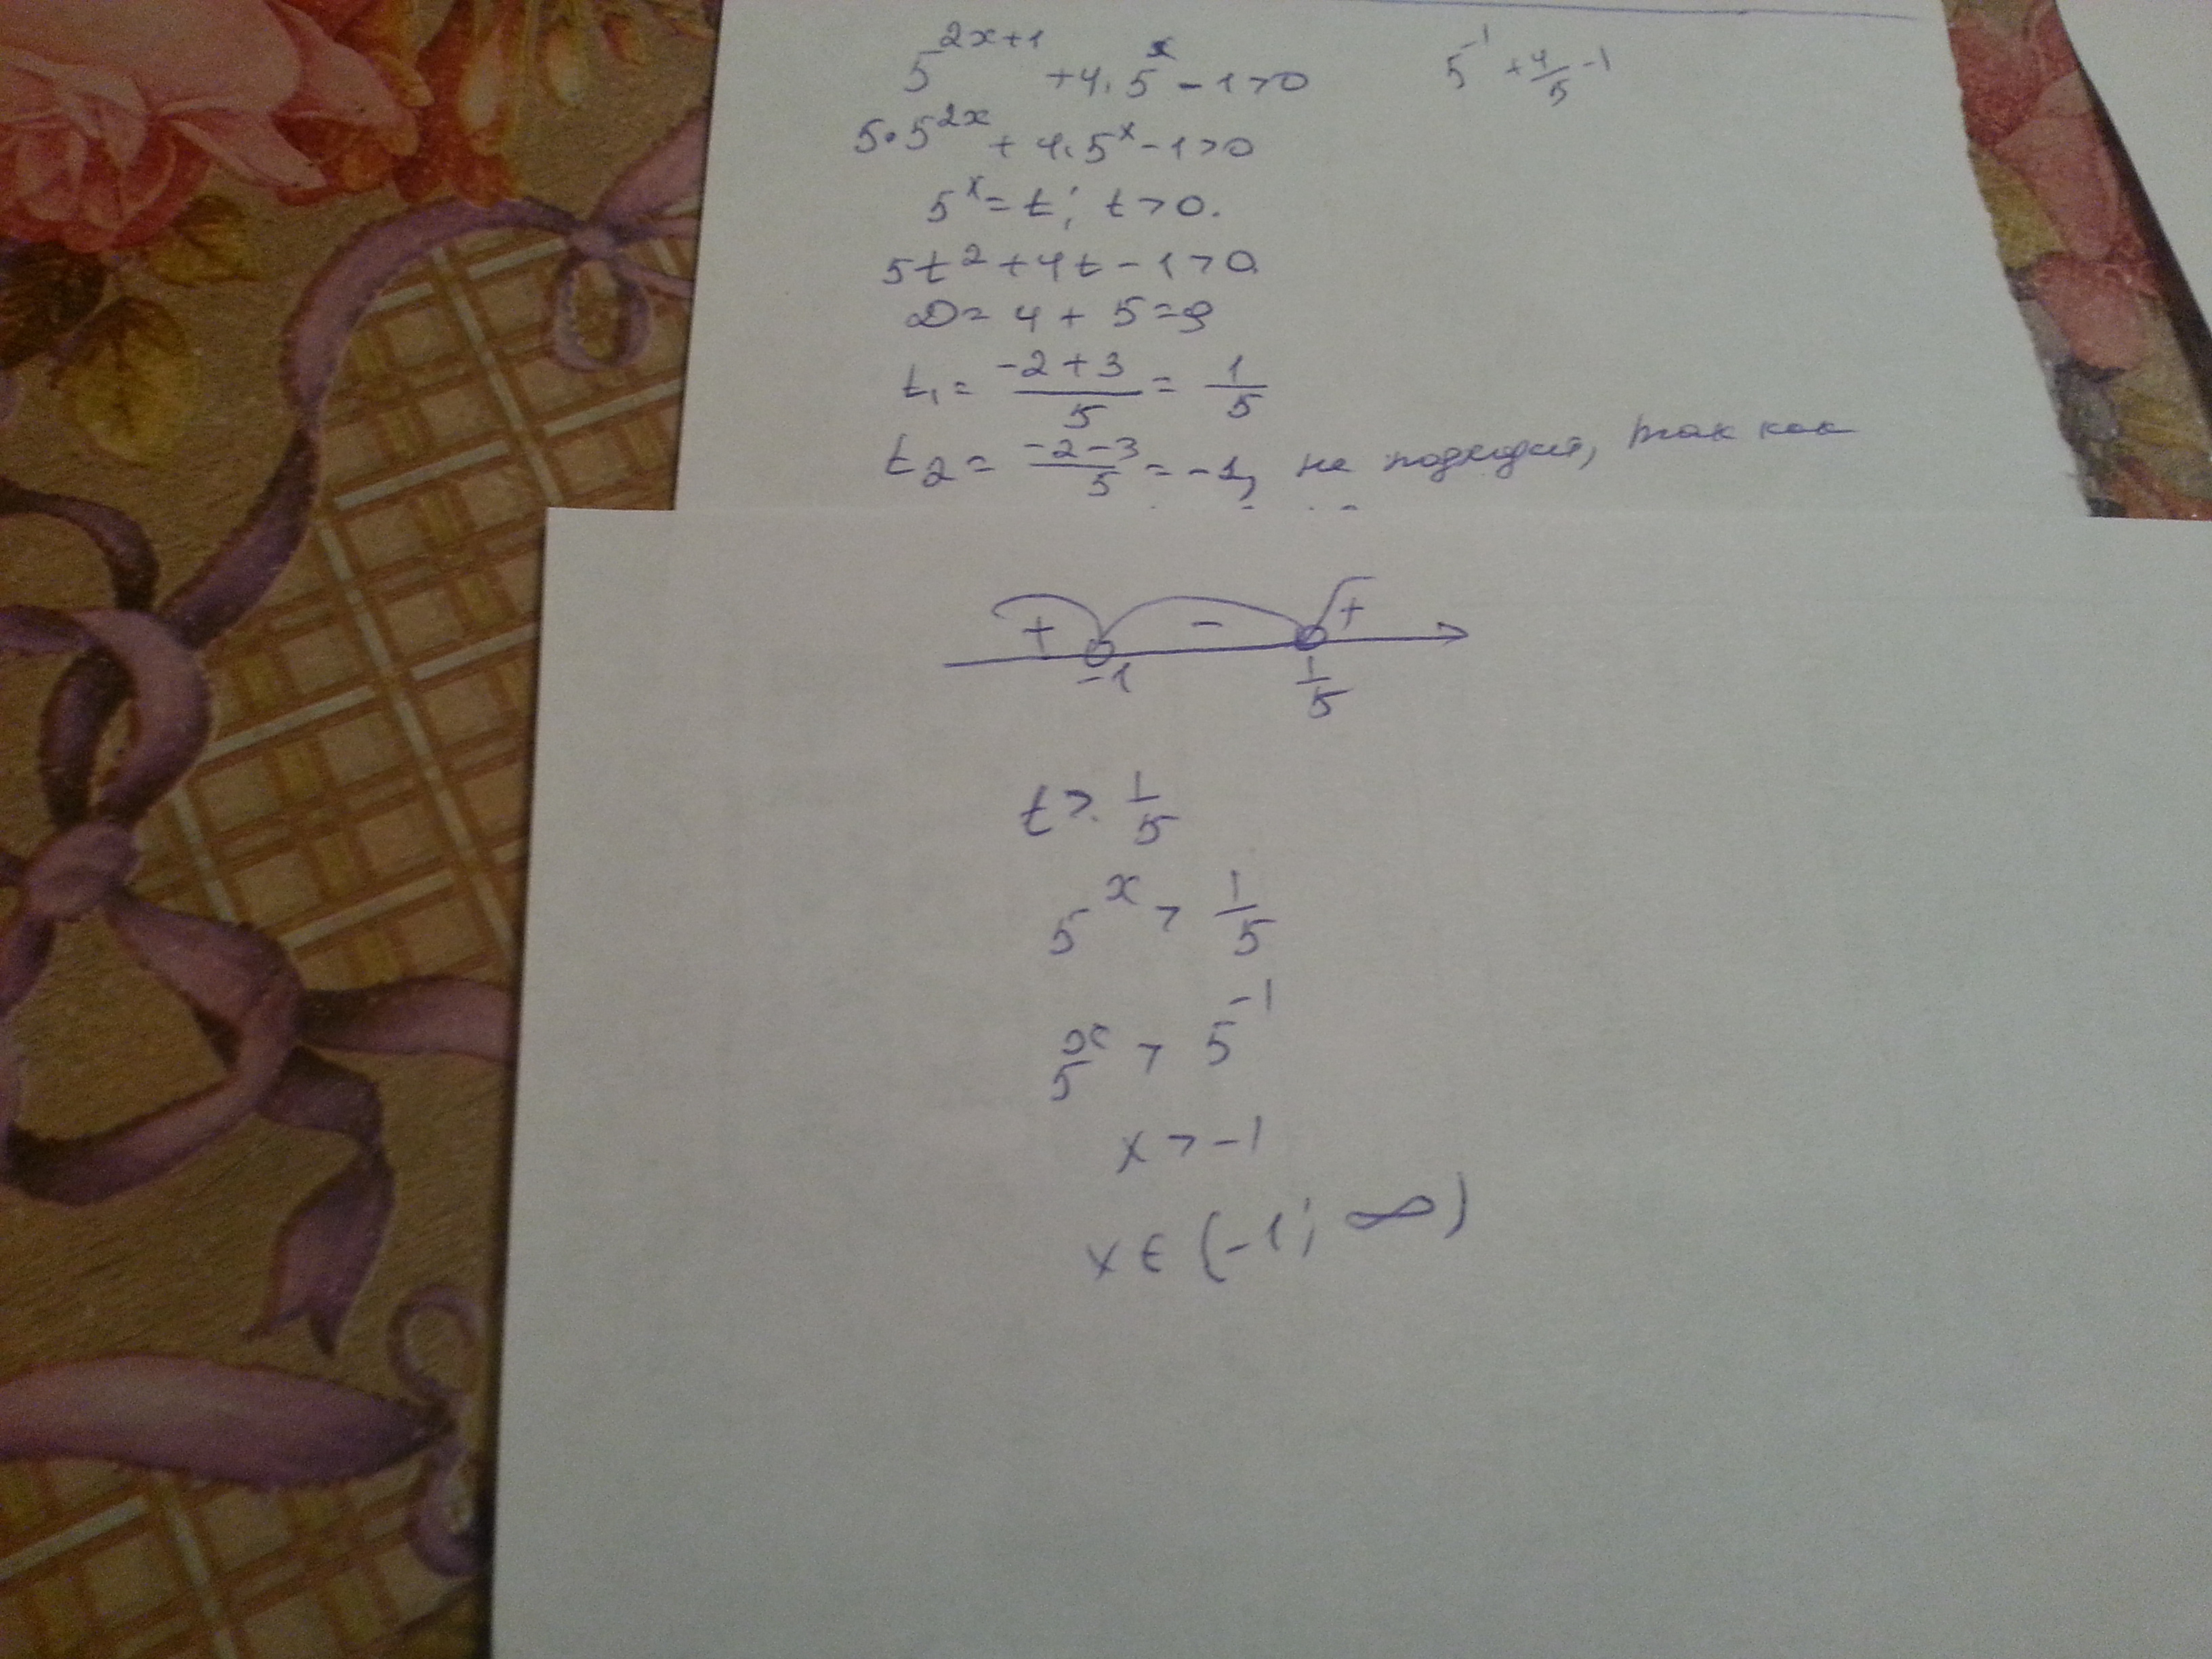 5^{2x+1} + 4·5^x - 1 > 0
5^{-1} + 4/5 - 1
5·5^{2x} + 4·5^x - 1 > 0
5^x = t; t > 0.
5t^2 + 4t - 1 > 0
D = 4 + 5 = 9
t_1 = (-2+3)/5 = 1/5
t_2 = (-2-3)/5 = -1, не подходит, так как
+ - +
-1 1/5
t > 1/5
5^x > 1/5
5^x > 5^{-1}
x > -1
x ∈ (-1; ∞)